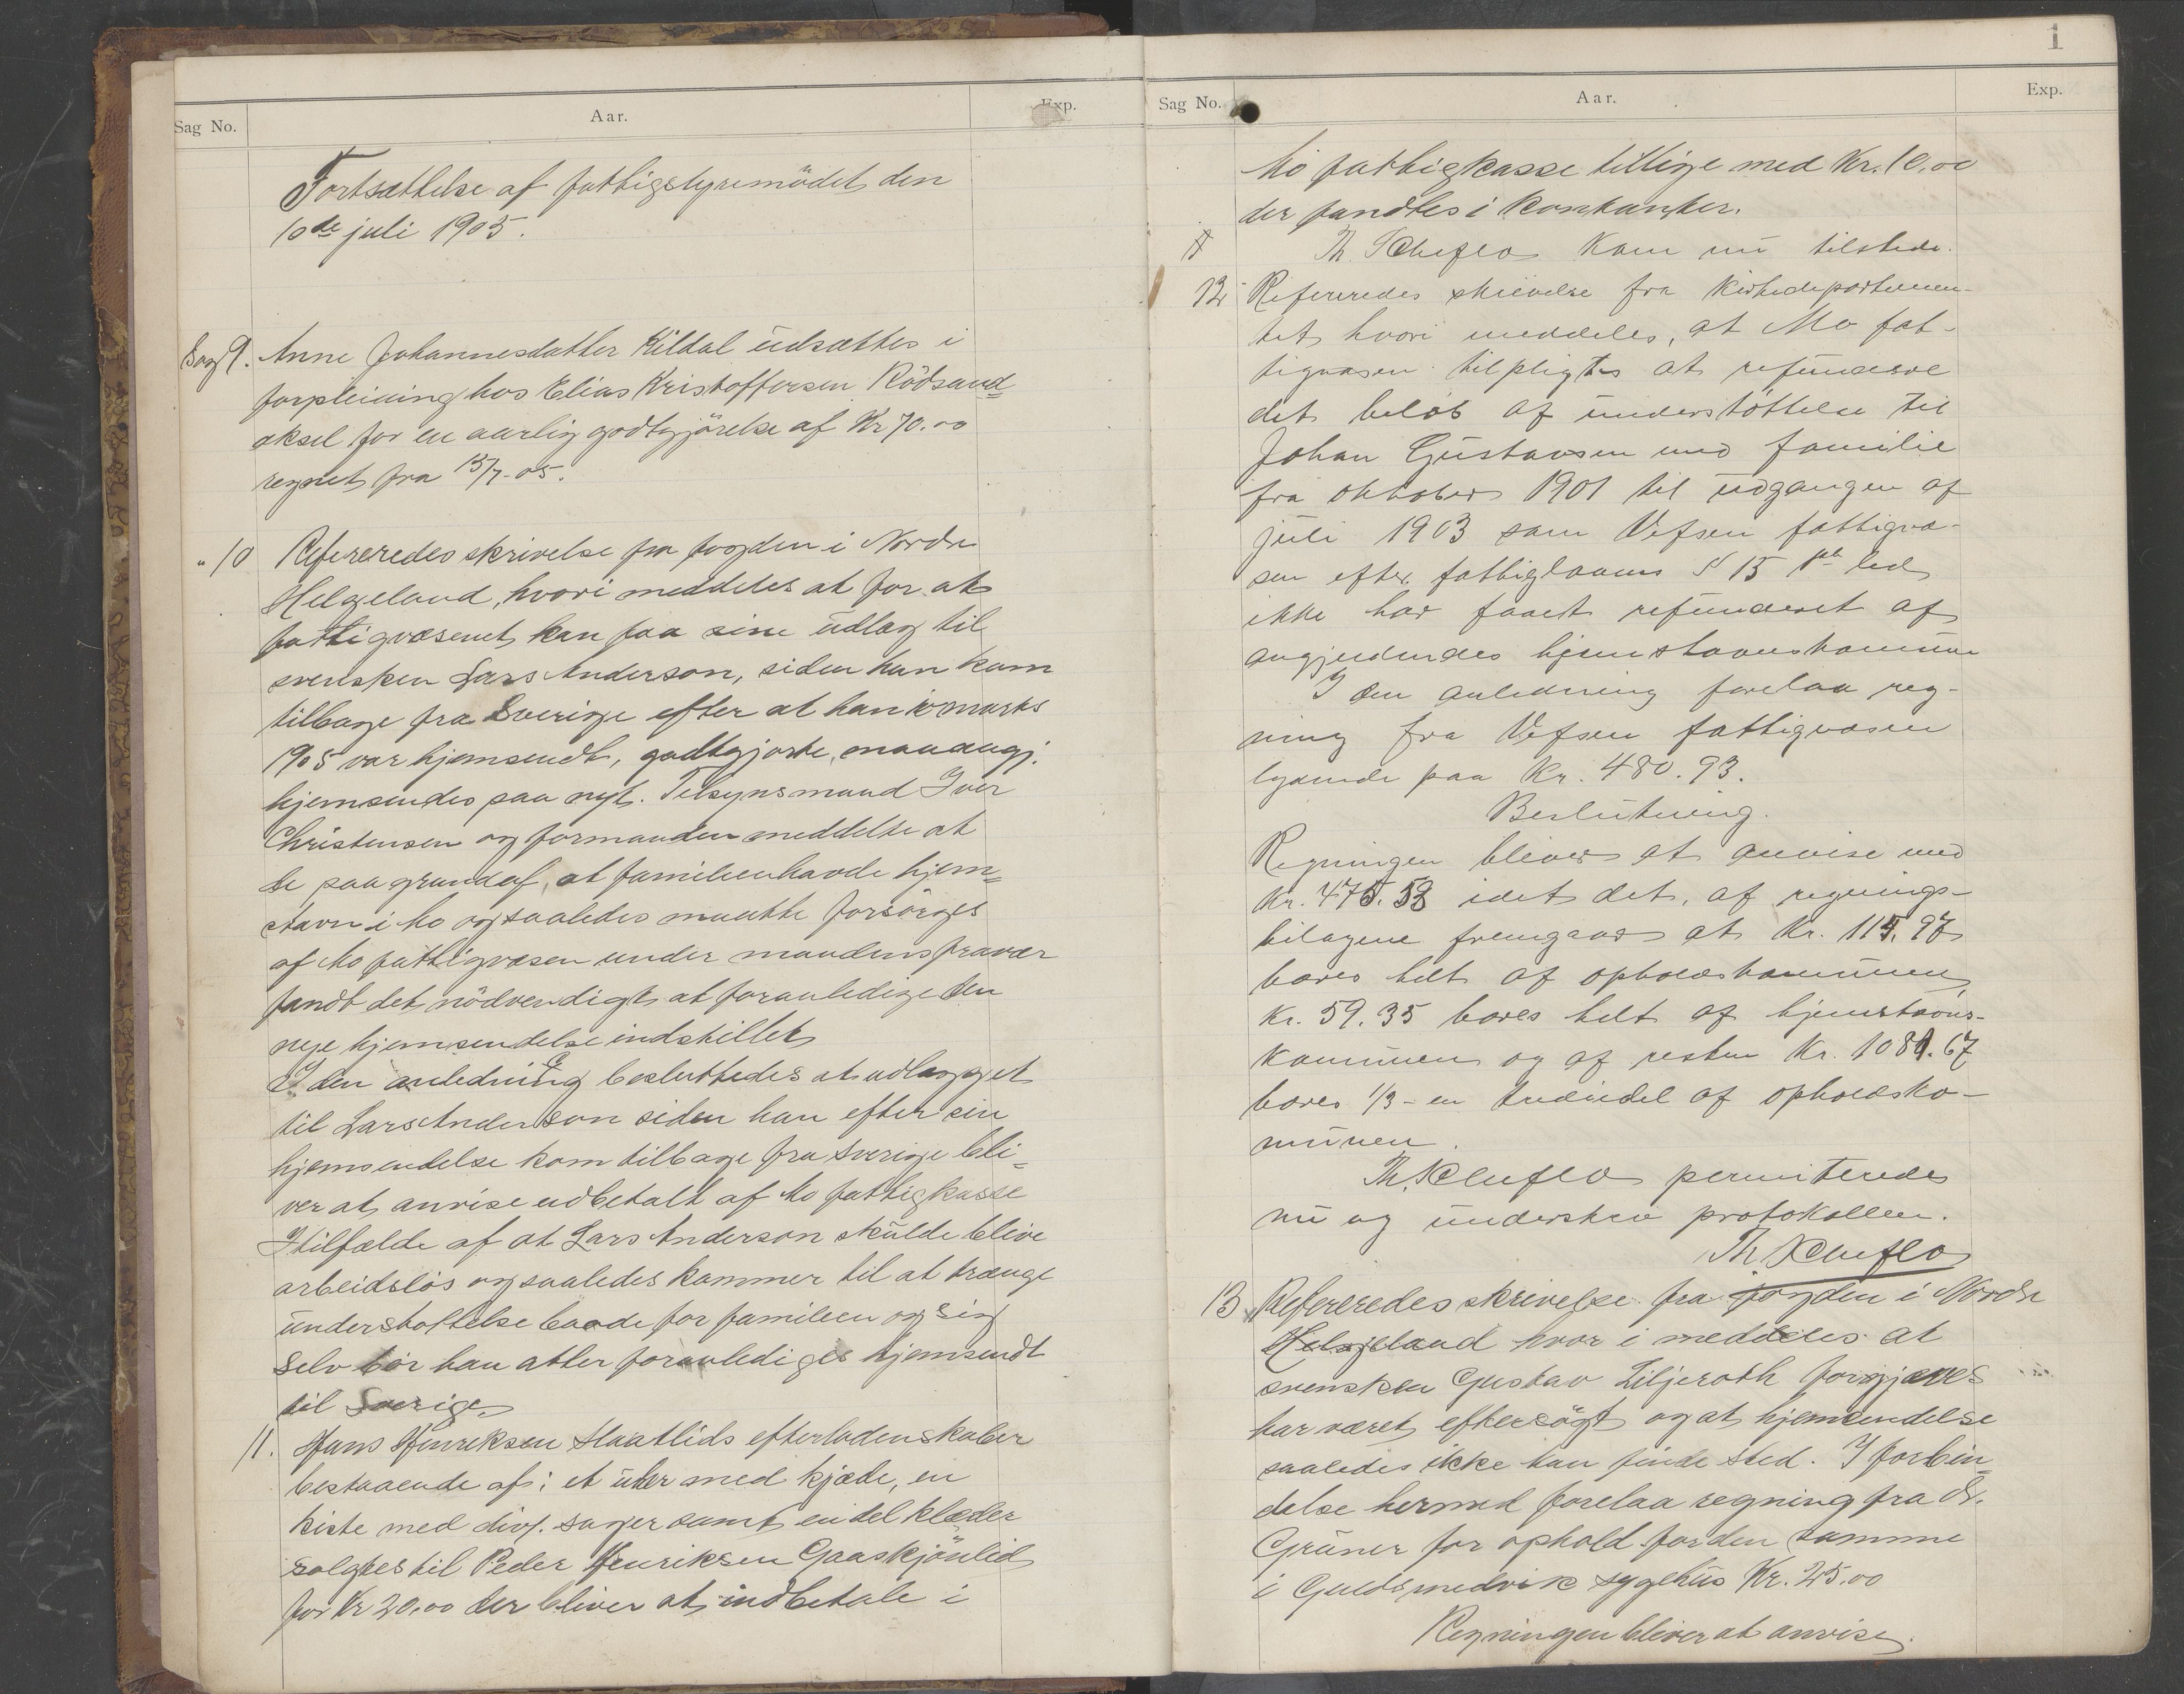 Sag No.
Aar.
Exp.
Fortsættelse af fattigstyremödet den
10de juli 1905.
Sag 9. Anne Johannesdatter Kildal udsættes i
forpleining hos Elias Kristoffersen Rödsand-
aksel for en aarlig godtgjörelse af Kr 70.00
regnet fra 15/7-05.
" 10 Refereredes skrivelse fra fogden i Nordre
Helgeland, hvori meddeles at for at
fattigvæsenet kan faa sine udlæg til
svensken Lars Anderson, siden han kom
tilbage fra Sverige efter at han i marts
1905 var hjemsendt, godtgjorte, maa angj.
hjemsendes paa nyt. Tilsynsmand Iver
Christensen og formanden meddelte at
de paa grund af, at familien havde hjem-
stavn i Mo og saaledes maatte forsörges
af Mo fattigvæsen under mandens fravær
fandt det nödvendigt at foranledige den
nye hjemsendelse indstillet
I den anledning besluttedes at udlægget
til Lars Anderson siden han efter sin
hjemsendelse kom tilbage fra Sverige bli-
ver at anvise udbetalt af Mo fattigkasse
I tilfælde af at Lars Anderson skulde blive
arbeidslös og saaledes kommer til at trænge
understöttelse baade for familien og sig
selv bör han atter foranlediges hjemsendt
til Sverige.
11. Hans Henriksen Slaatlids efterladenskaber
bestaaende af: et uhr med kjæde, en
kiste med div. sager samt en del klæder
solgtes til Peder Henriksen Gaaskjönlid
for Kr 20.00 der bliver at indbetale i
1
Sag No.
Aar.
Exp.
Mo fattigkasse tillige med Kr. 10.00
der fandtes i kontanter.
Th. Scheflo kom nu tilstede.
12 Refereredes skrivelse fra kirkedepartemen-
tet hvori meddeles, at Mo fat-
tigvæsen tilpligtes at refundere
det beløb af understöttelse til
Johan Gustavsen med familie
fra oktober 1901 til udgangen af
juli 1903 som Vefsen fattigvæ-
sen efter fattiglovens § 15 1ste led
ikke har faaet refunderet af
angjeldendes hjemstavnskommune
I den anledning forelaa reg-
ning fra Vefsen fattigvæsen
lydende paa Kr. 480.93.
Beslutning.
Regningen bliver at anvise med
Kr. 475.58 idet det, af regnings-
bilagene fremgaar at Kr. 115.97
bæres helt af opholdskommunen
Kr. 59.35 bæres helt af hjemstavns-
kommunen og af resten Kr. 1081.67
bæres 1/3 - en trediedel af opholdsko-
munen.
Th. Scheflo permiteredes
nu og underskrev protokollen.
Th Scheflo
13 Refereredes skrivelse fra fogden i Nordre
Helgeland hvor i meddeles at
svensken Gustav Liljeroth forgjæves
har været eftersögt og at hjemsendelse
saaledes ikke kan finde sted. I forbin-
delse hermed forelaa regning fra dr.
Grüner for ophold for den samme
i Guldsmedvik sygehus Kr. 25.00
Regningen bliver at anvise.